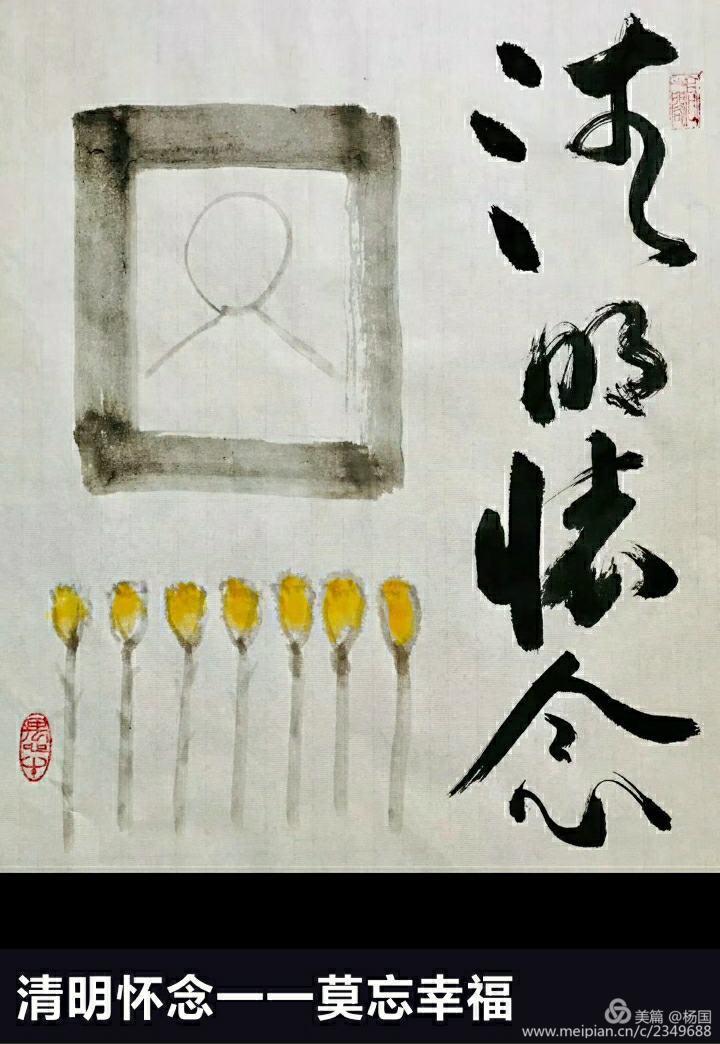 清明怀念
清明怀念一一莫忘幸福
美篇 @杨国
www.meipian.cn/c/2349688